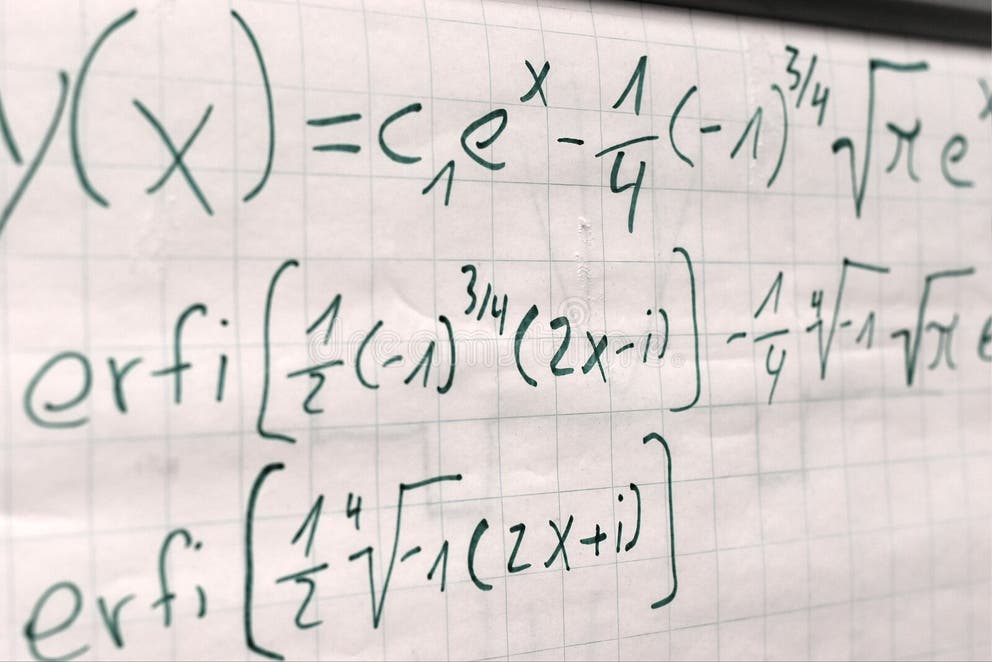 y(x) = c₁eˣ - 1/4 (-1)^3/4 √π e^x
erfi [1/2 (-1)^3/4 (2x-i)] - 1/4 ∜-1 √π e
erfi [1/2 ∜-1 (2x+i)]